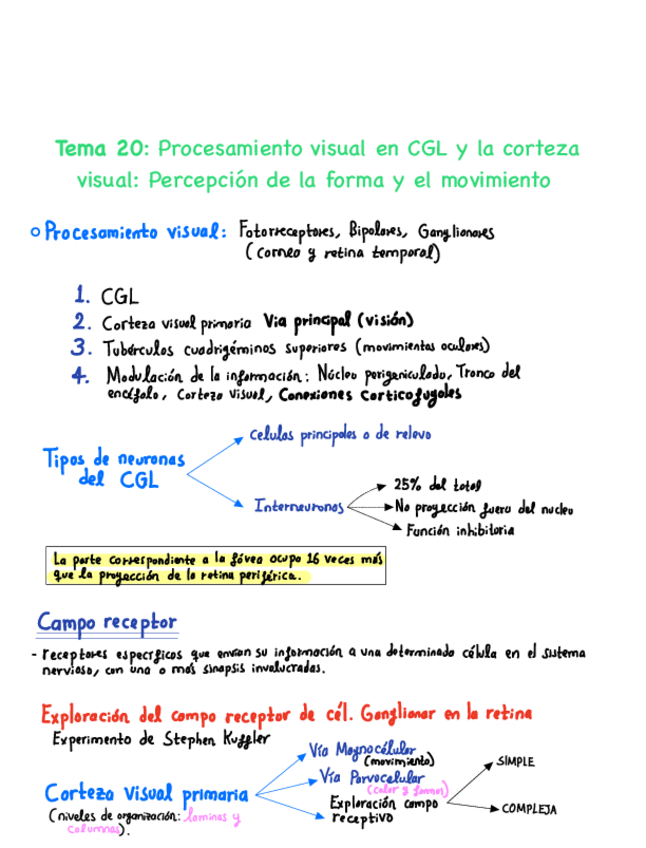 Tema 20: Procesamiento visual en CGL y la corteza
visual: Percepción de la forma y el movimiento
Procesamiento visual: Fotorreceptores, Bipolares, Ganglionares
(corneo y retina temporal)
1. CGL
2. Corteza visual primaria Via principal (visión)
3. Tubérculos cuadrigéminos superiores (movimientos oculares)
4. Modulación de la información: Núcleo perigeniculado, Tronco del
encéfalo, Corteza Visual, Conexiones Corticofugales
Tipos de neuronas
del CGL
Celulas principales o de relevo
Interneuronas
25% del total
No proyección fuera del nucleo
Función inhibitoria
La parte correspondiente a la fóvea ocupa 16 veces más
que la proyección de la retina periférica.
Campo receptor
- receptores específicos que envían su información a una determinada célula en el sistema
nervioso, con una o más sinapsis involucradas.
Exploración del campo receptor de cél. Ganglionar en la retina
Experimento de Stephen Kuffler
Corteza Visual primaria
(niveles de organización: laminas y
columnas).
Vía Magnocélular
(movimiento)
Vía Parvocelular
(color y formas)
Exploración campo
receptivo
SIMPLE
COMPLEJA